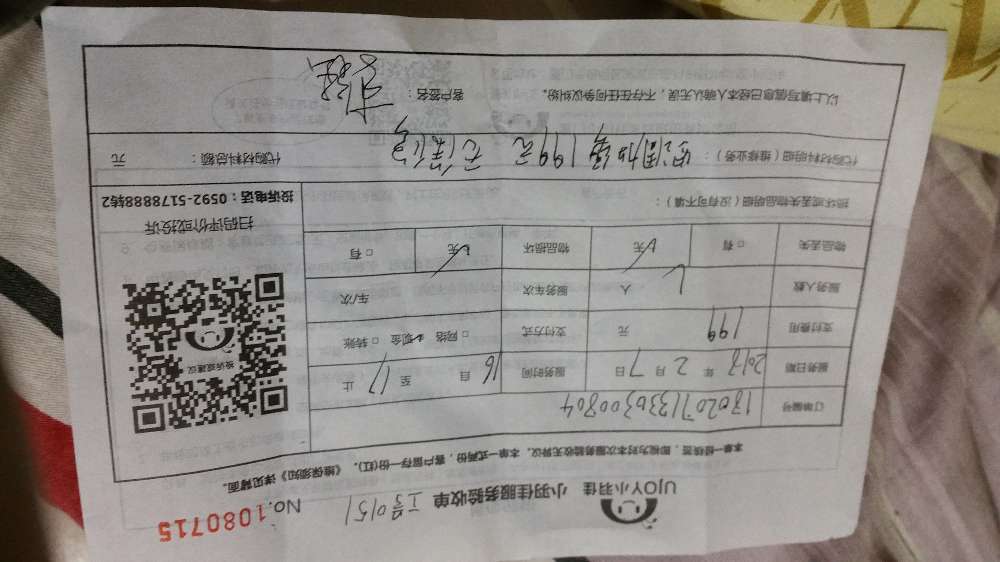 UJOY小羽佳 小羽佳服务验收单 工号0151 No.1080715
本单一经核签，即视为对本次服务验收无异议。本单一式两份，客户留存一份(红)。《维保须知》详见背面。
订单编号
服务日期 2018 年 2 月 7 日 服务时间 16 自 至 17 止
支付费用 199 元 支付方式 □ 网络 ☑ 现金 □ 转账
服务人数 1 人 服务车次 车/次
物品丢失 □ 有 ☑ 无 物品损坏 ☑ 无 □ 有
损坏或丢失物品明细（没有可不填）：
投诉或建议
扫码评价或投诉
投诉电话：0592-5178888转2
代购材料明细（维修业务）：空调加氟199元 无保修 代购材料总额： 元
以上填写信息已经本人确认无误，不存在任何争议纠纷。 客户签名：